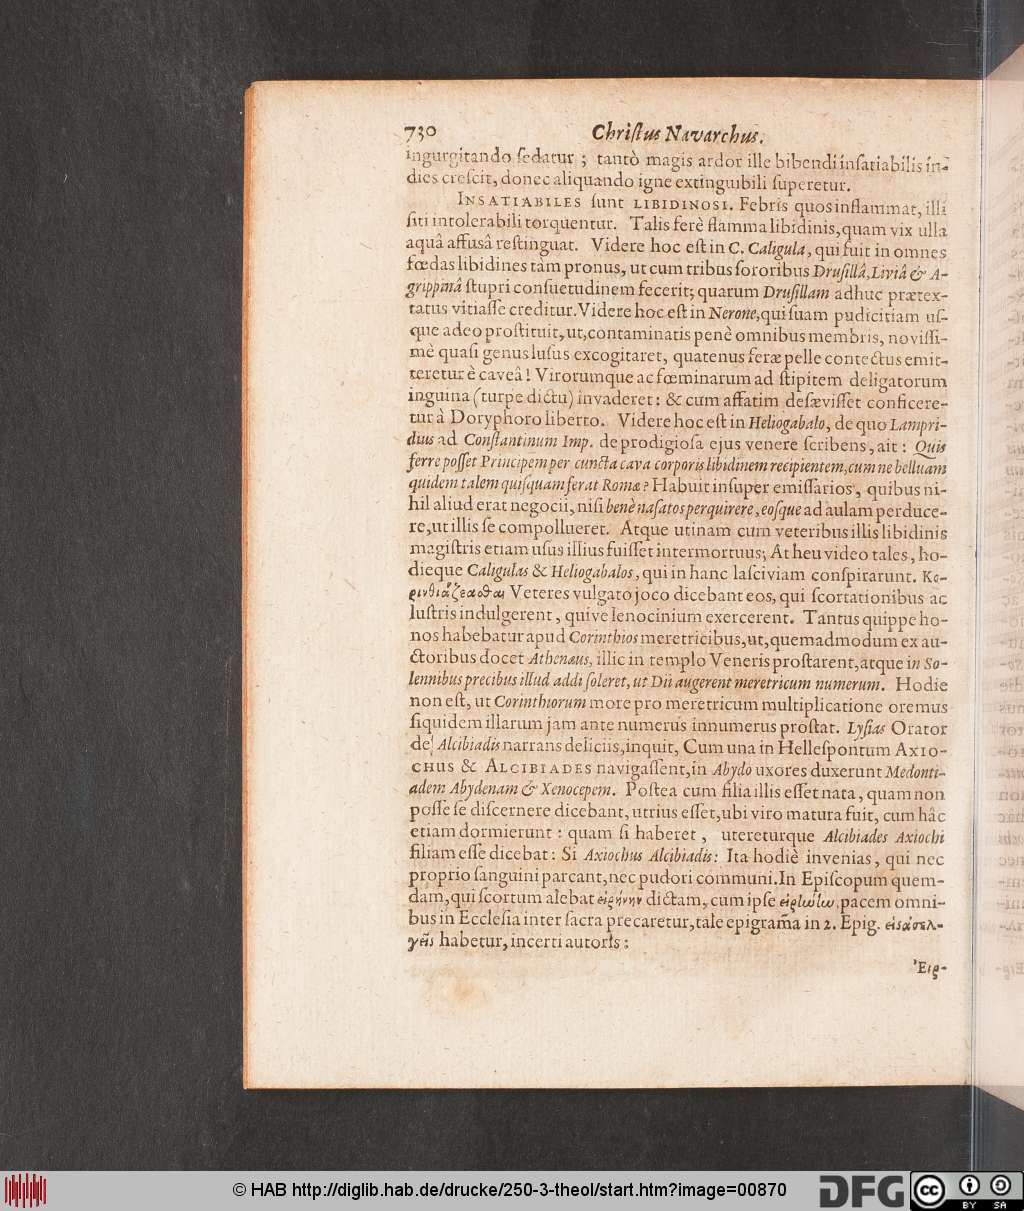 730 Christus Navarchus.
ingurgitando ſedatur ; tantò magis ardor ille bibendi inſatiabilis in-
dies creſcit, donec aliquando igne extinguibili ſuperetur.
INSATIABILES ſunt LIBIDINOSI. Febris quos inflammat, illi
ſiti intolerabili torquentur. Talis ferè flamma libidinis, quam vix ulla
aquâ affusâ reſtinguat. Videre hoc eſt in C. Caligula, qui fuit in omnes
fœdas libidines tàm pronus, ut cum tribus ſororibus Druſillâ, Liviâ & A-
grippinâ ſtupri conſuetudinem fecerit; quarum Druſillam adhuc prætex-
tatus vitiaſſe creditur. Videre hoc eſt in Nerone, qui ſuam pudicitiam uſ-
que adeo proſtituit, ut, contaminatis penè omnibus membris, noviſſi-
mè quaſi genus luſus excogitaret, quatenus feræ pelle contectus emit-
teretur è caveâ! Virorumque ac fœminarum ad ſtipitem deligatorum
inguina (turpe dictu) invaderet: & cum affatim deſæviſſet conficere-
tur à Doryphoro liberto. Videre hoc eſt in Heliogabalo, de quo Lampri-
dius ad Conſtantinum Imp. de prodigioſa ejus venere ſcribens, ait: Quis
ferre poſſet Principem per cuncta cava corporis libidinem recipientem, cum ne belluam
quidem talem quiſquam ferat Romæ? Habuit inſuper emiſſarios, quibus ni-
hil aliud erat negocii, niſi benè naſatos perquirere, eoſque ad aulam perduce-
re, ut illis ſe compollueret. Atque utinam cum veteribus illis libidinis
magiſtris etiam uſus illius fuiſſet intermortuus; At heu video tales, ho-
dieque Caligulas & Heliogabalos, qui in hanc laſciviam conſpirarunt. Κο-
ρινθιάζεσθαι Veteres vulgato joco dicebant eos, qui ſcortationibus ac
luſtris indulgerent, quive lenocinium exercerent. Tantus quippe ho-
nos habebatur apud Corinthios meretricibus, ut, quemadmodum ex au-
ctoribus docet Athenæus, illic in templo Veneris proſtarent, atque in So-
lennibus precibus illud addi ſoleret, ut Dii augerent meretricum numerum. Hodie
non eſt, ut Corinthiorum more pro meretricum multiplicatione oremus
ſiquidem illarum jam ante numerus innumerus proſtat. Lyſias Orator
de Alcibiadis narrans deliciis, inquit, Cum una in Helleſpontum AXIO-
CHUS & ALCIBIADES navigaſſent, in Abydo uxores duxerunt Medonti-
adem Abydenam & Xenocepem. Poſtea cum filia illis eſſet nata, quam non
poſſe ſe diſcernere dicebant, utrius eſſet, ubi viro matura fuit, cum hâc
etiam dormierunt: quam ſi haberet, utereturque Alcibiades Axiochi
filiam eſſe dicebat: Si Axiochus Alcibiadis: Ita hodiè invenias, qui nec
proprio ſanguini parcant, nec pudori communi. In Epiſcopum quem-
dam, qui ſcortum alebat εἰρήνην dictam, cum ipſe εἰρήνην, pacem omni-
bus in Eccleſia inter ſacra precaretur, tale epigram̃a in 2. Epig. εἰς ἀσελ-
γεῖς habetur, incerti autoris:
Ἐιρ-
© HAB http://diglib.hab.de/drucke/250-3-theol/start.htm?image=00870
DFG
cc BY SA